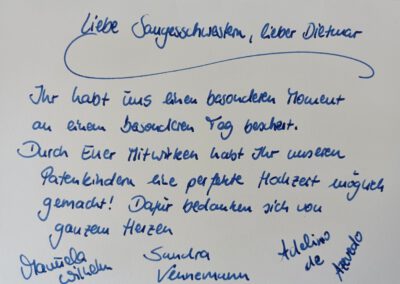 Liebe Sangesschwestern, lieber Dietmar
Ihr habt uns einen besonderen Moment
an einem besonderen Tag beschert.
Durch Euer Mitwirken habt Ihr unseren
Patenkindern eine perfekte Hochzeit möglich
gemacht! Dafür bedanken sich von
ganzem Herzen
Manuela
Wilhelm
Sandra
Vennemann
Adelino
de
Azevedo